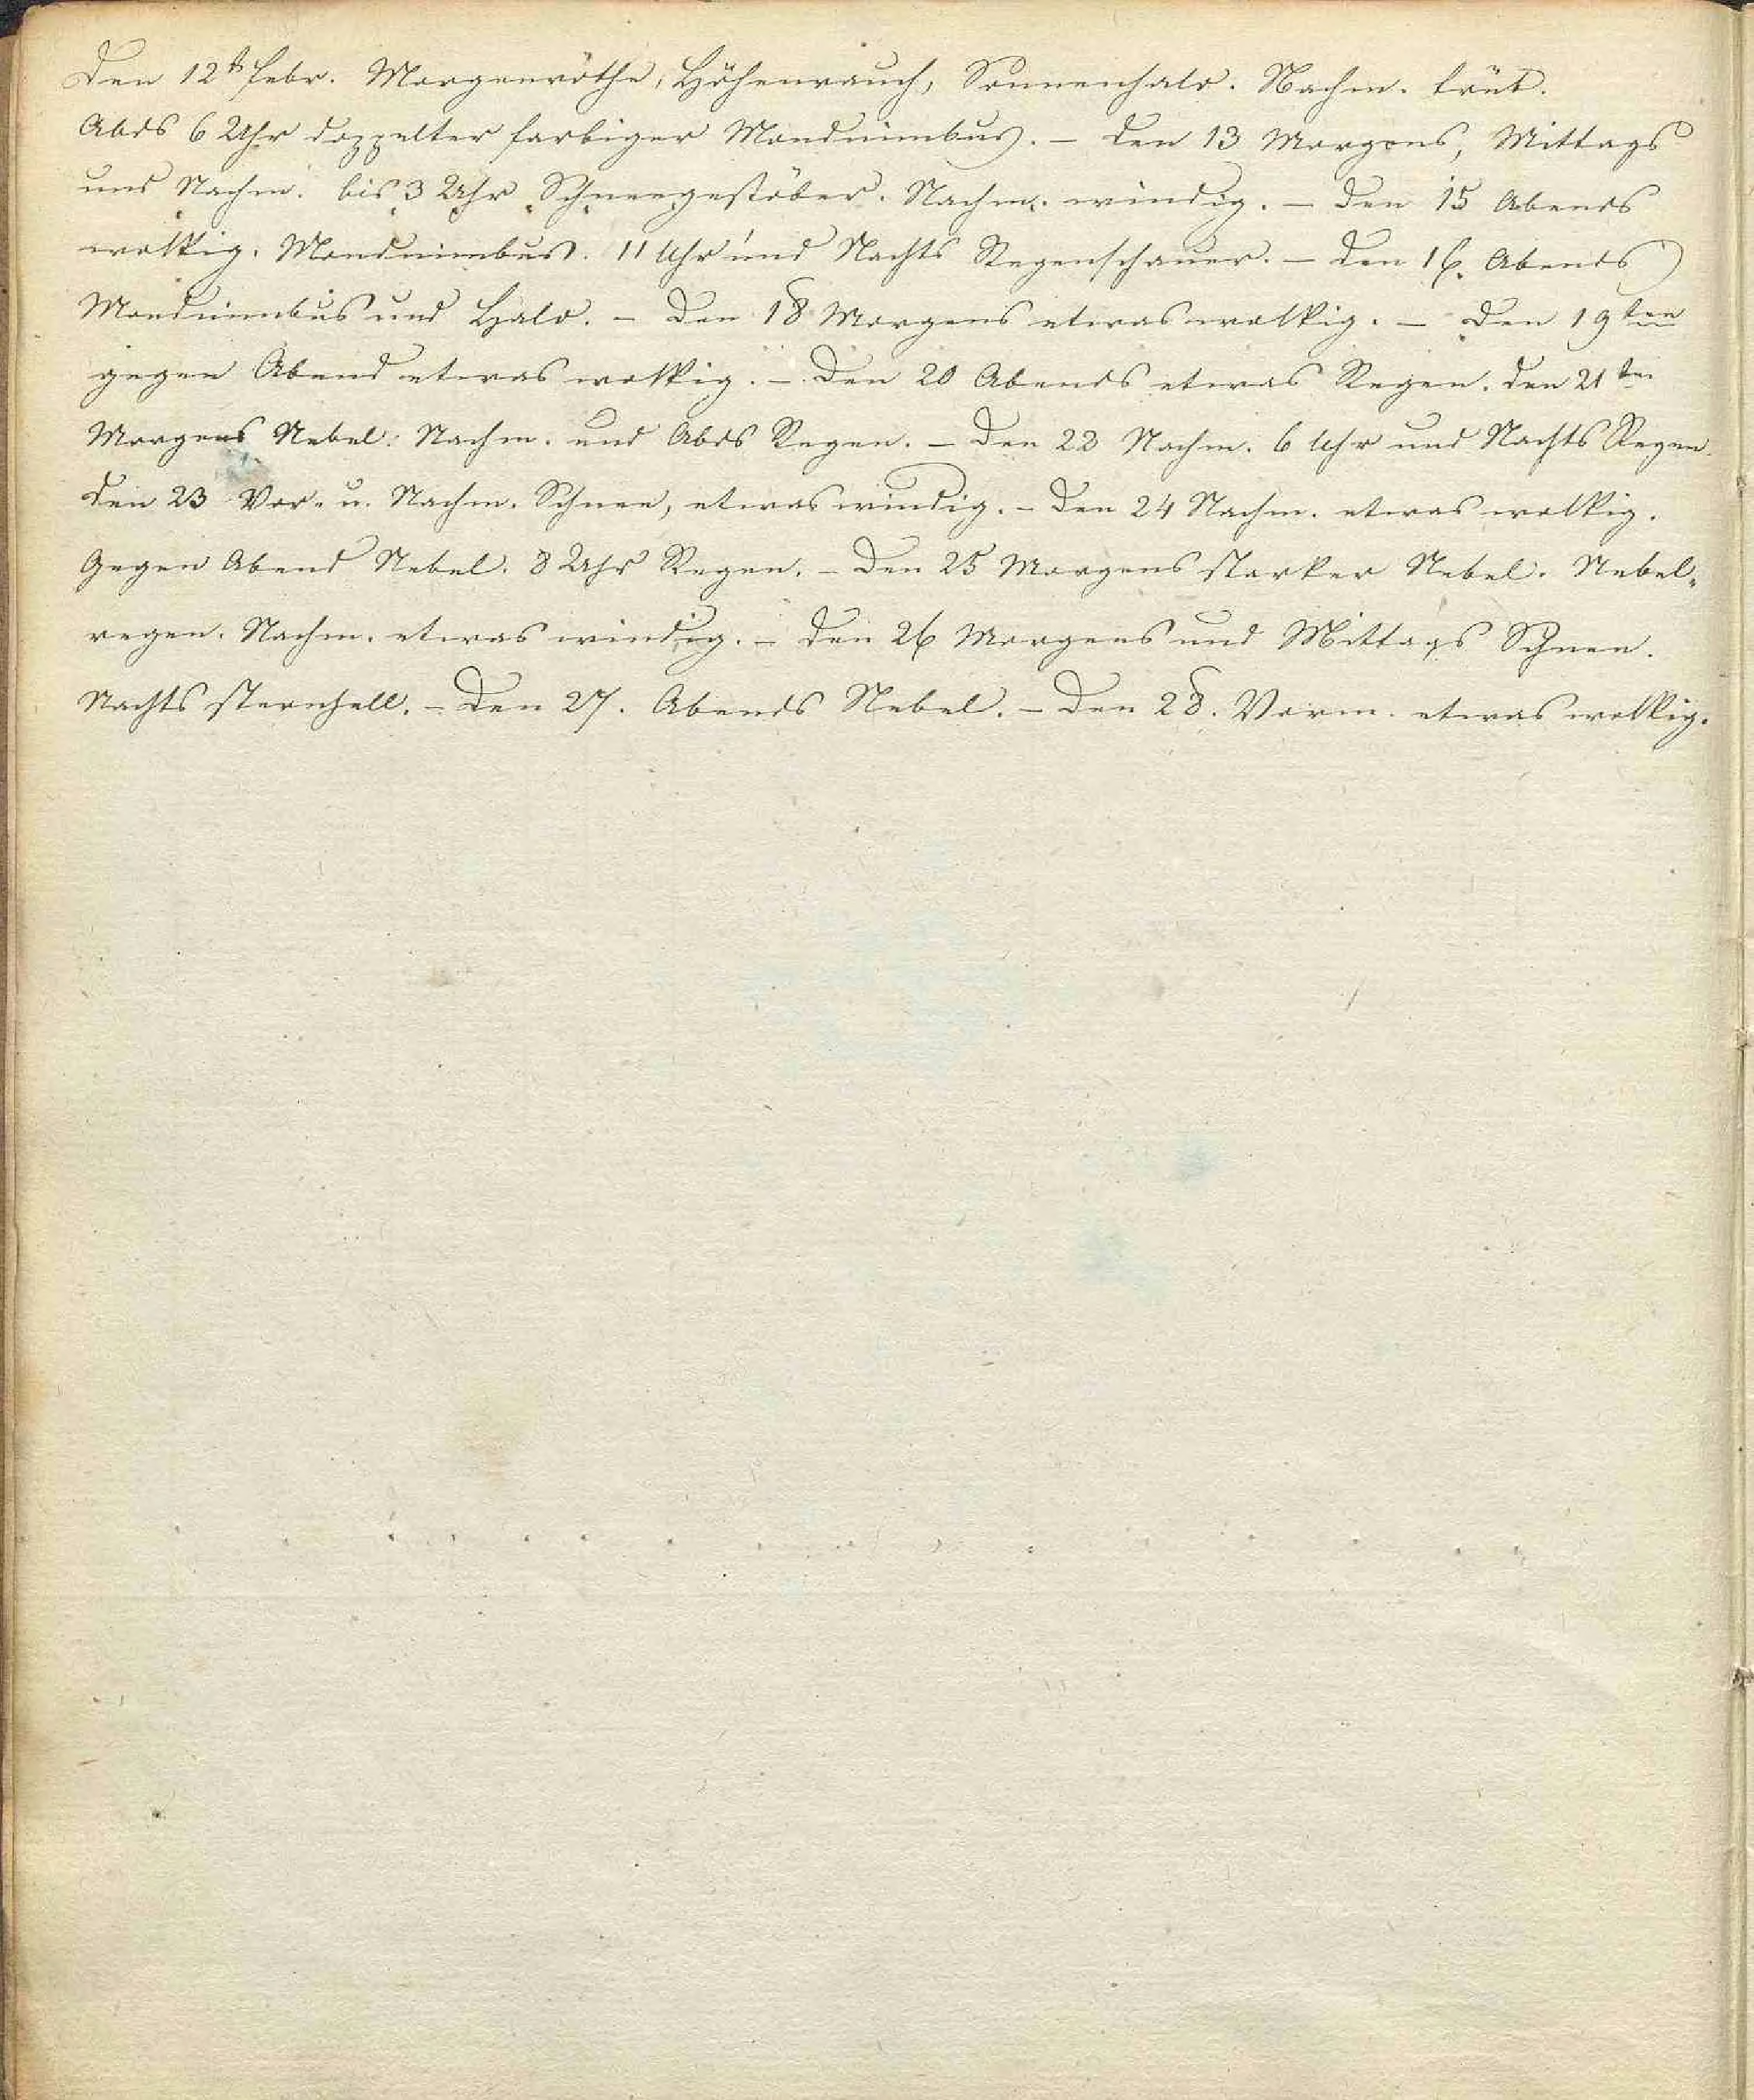 Den 12t Febr. Morgenröthe, Höhenrauch, Sonnenhalo. Nachm. trüb.
Abds 6 Uhr doppelter farbiger Mondnimbus. – Den 13 Morgens, Mittags
und Nachm. bis 3 Uhr Schneegestöber. Nachm. windig. – Den 15 Abends
wolkig. Mondnimbus. 11 Uhr und Nachts Regenschauer. – Den 16. Abends
Mondnimbus und Halo. – Den 18 Morgens etwas wolkig. – Den 19ten
gegen Abend etwas wolkig. – Den 20 Abends etwas Regen. Den 21ten
Morgens Nebel. Nachm. und Abds Regen. – Den 22 Nachm. 6 Uhr und Nachts Regen.
Den 23 Vor- u. Nachm. Schnee, etwas windig. – Den 24 Nachm. etwas wolkig.
Gegen Abend Nebel. 8 Uhr Regen. – Den 25 Morgens starker Nebel. Nebel-
regen. Nachm. etwas windig. – Den 26 Morgens und Mittags Schnee.
Nachts sternhell. – Den 27. Abends Nebel. – Den 28. Vorm. etwas wolkig.